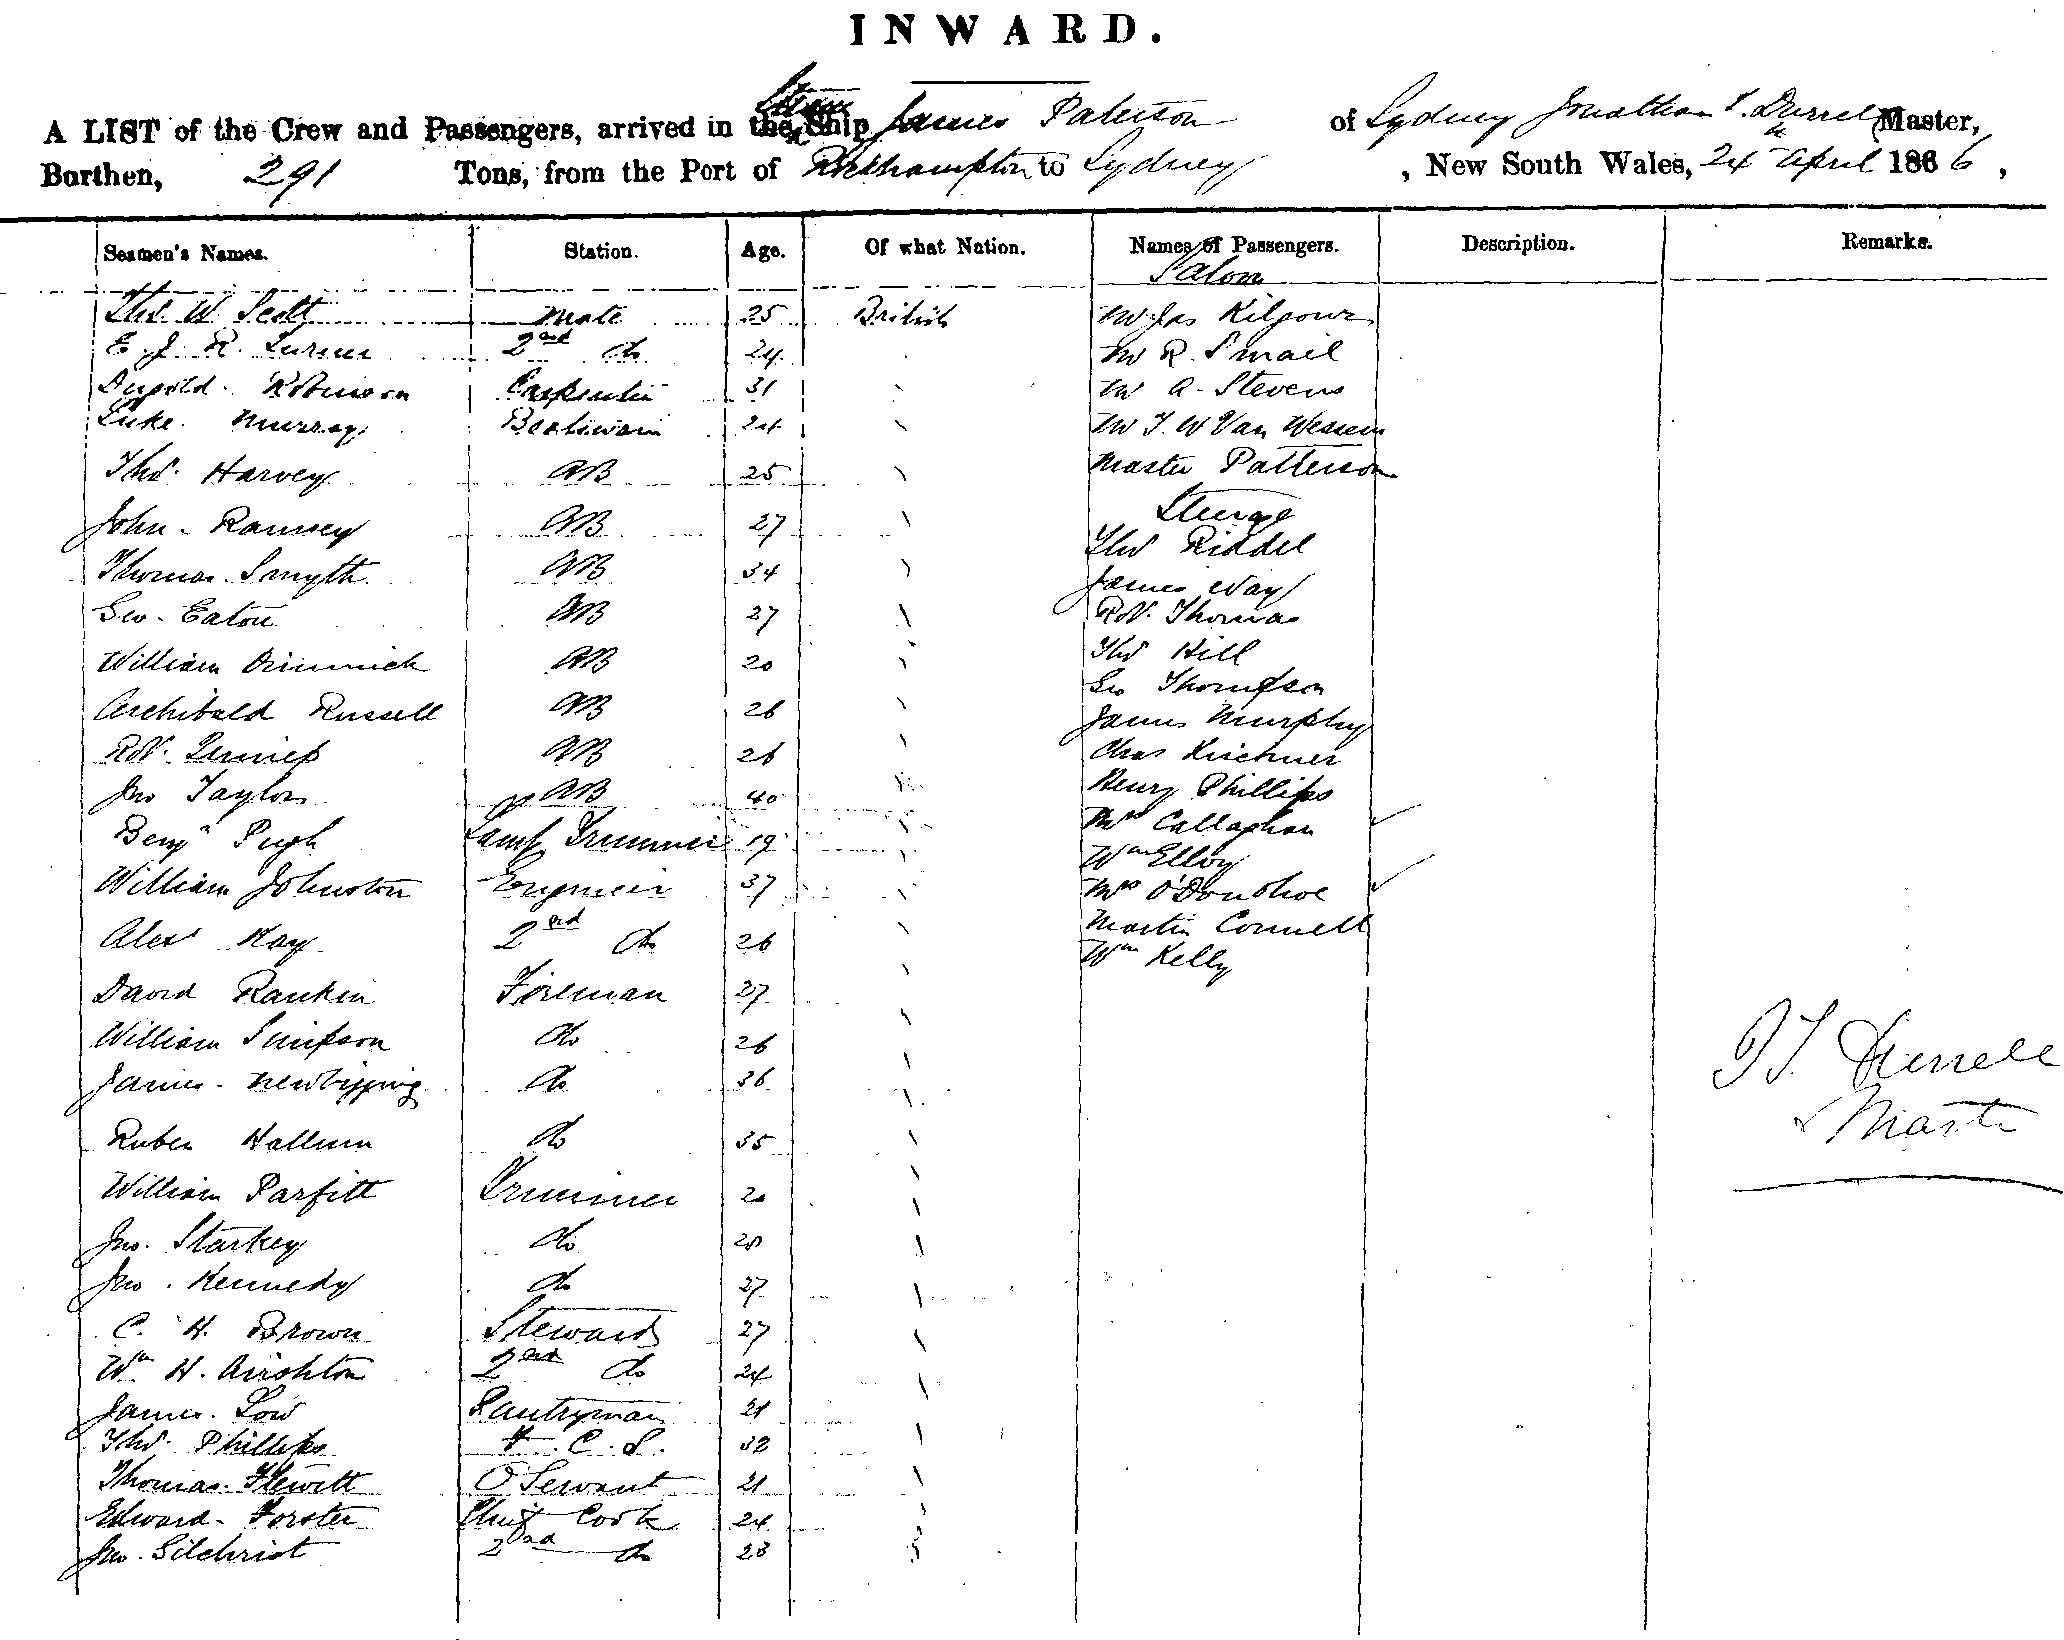 INWARD.
A LIST of the Crew and Passengers, arrived in the Ship James Paterson of Sydney Jonathan T. Durrell Master,
Burthen, 291 Tons, from the Port of Rockhampton to Sydney, New South Wales, 24th April 1866,
Seamen's Names. Station. Age. Of what Nation. Names of Passengers. Description. Remarks.
Saloon
Thos. W. Scott Mate 25 British Mr Jas Kilgour
E. J. R. Turner 2nd do 24 Mr R. Smail
Dugold Robinson Carpenter 31 Mr A. Stevens
Luke Murray Boatswain 24 Mr T. W Van Wessem
Thos. Harvey AB 25 Master Patterson
Steerage
John Ramsey AB 27 Thos Riddel
Thomas Smyth AB 34 James Way
Geo. Eaton AB 27 Robt. Thomas
William Dimmick AB 20 Thos Hill
Archibald Russell AB 26 Geo Thompson
Robt. AB 26 James Murphy
Jno Taylor AB 40 Chas Kirchner
Benjn Pugh Lamp Trimmer 19 Henry Phillips
William Johnston Engineer 37 Mrs Callaghan
Alexr Kay 2nd do 26 Wm Elloy
David Rankin Fireman 27 Mrs O'Donohoe
William Simpson do 26 Martin Connell
James Newbigging do 36 Wm Kelly
Ruben Hallum do 35
William Parfitt Trimmer 20
Jno. Starkey do 20
Jno. Kennedy do 27
C. H. Brown Steward 27
Wm H. Airshton 2nd do 24
James Low Pantryman 21
Thos. Phillips F. C. S. 32
Thomas Flewett O Servant 21
Edward Forster Chief Cook 24
Jno. Gilchrist 2nd do 23
J T. Durrell
Master